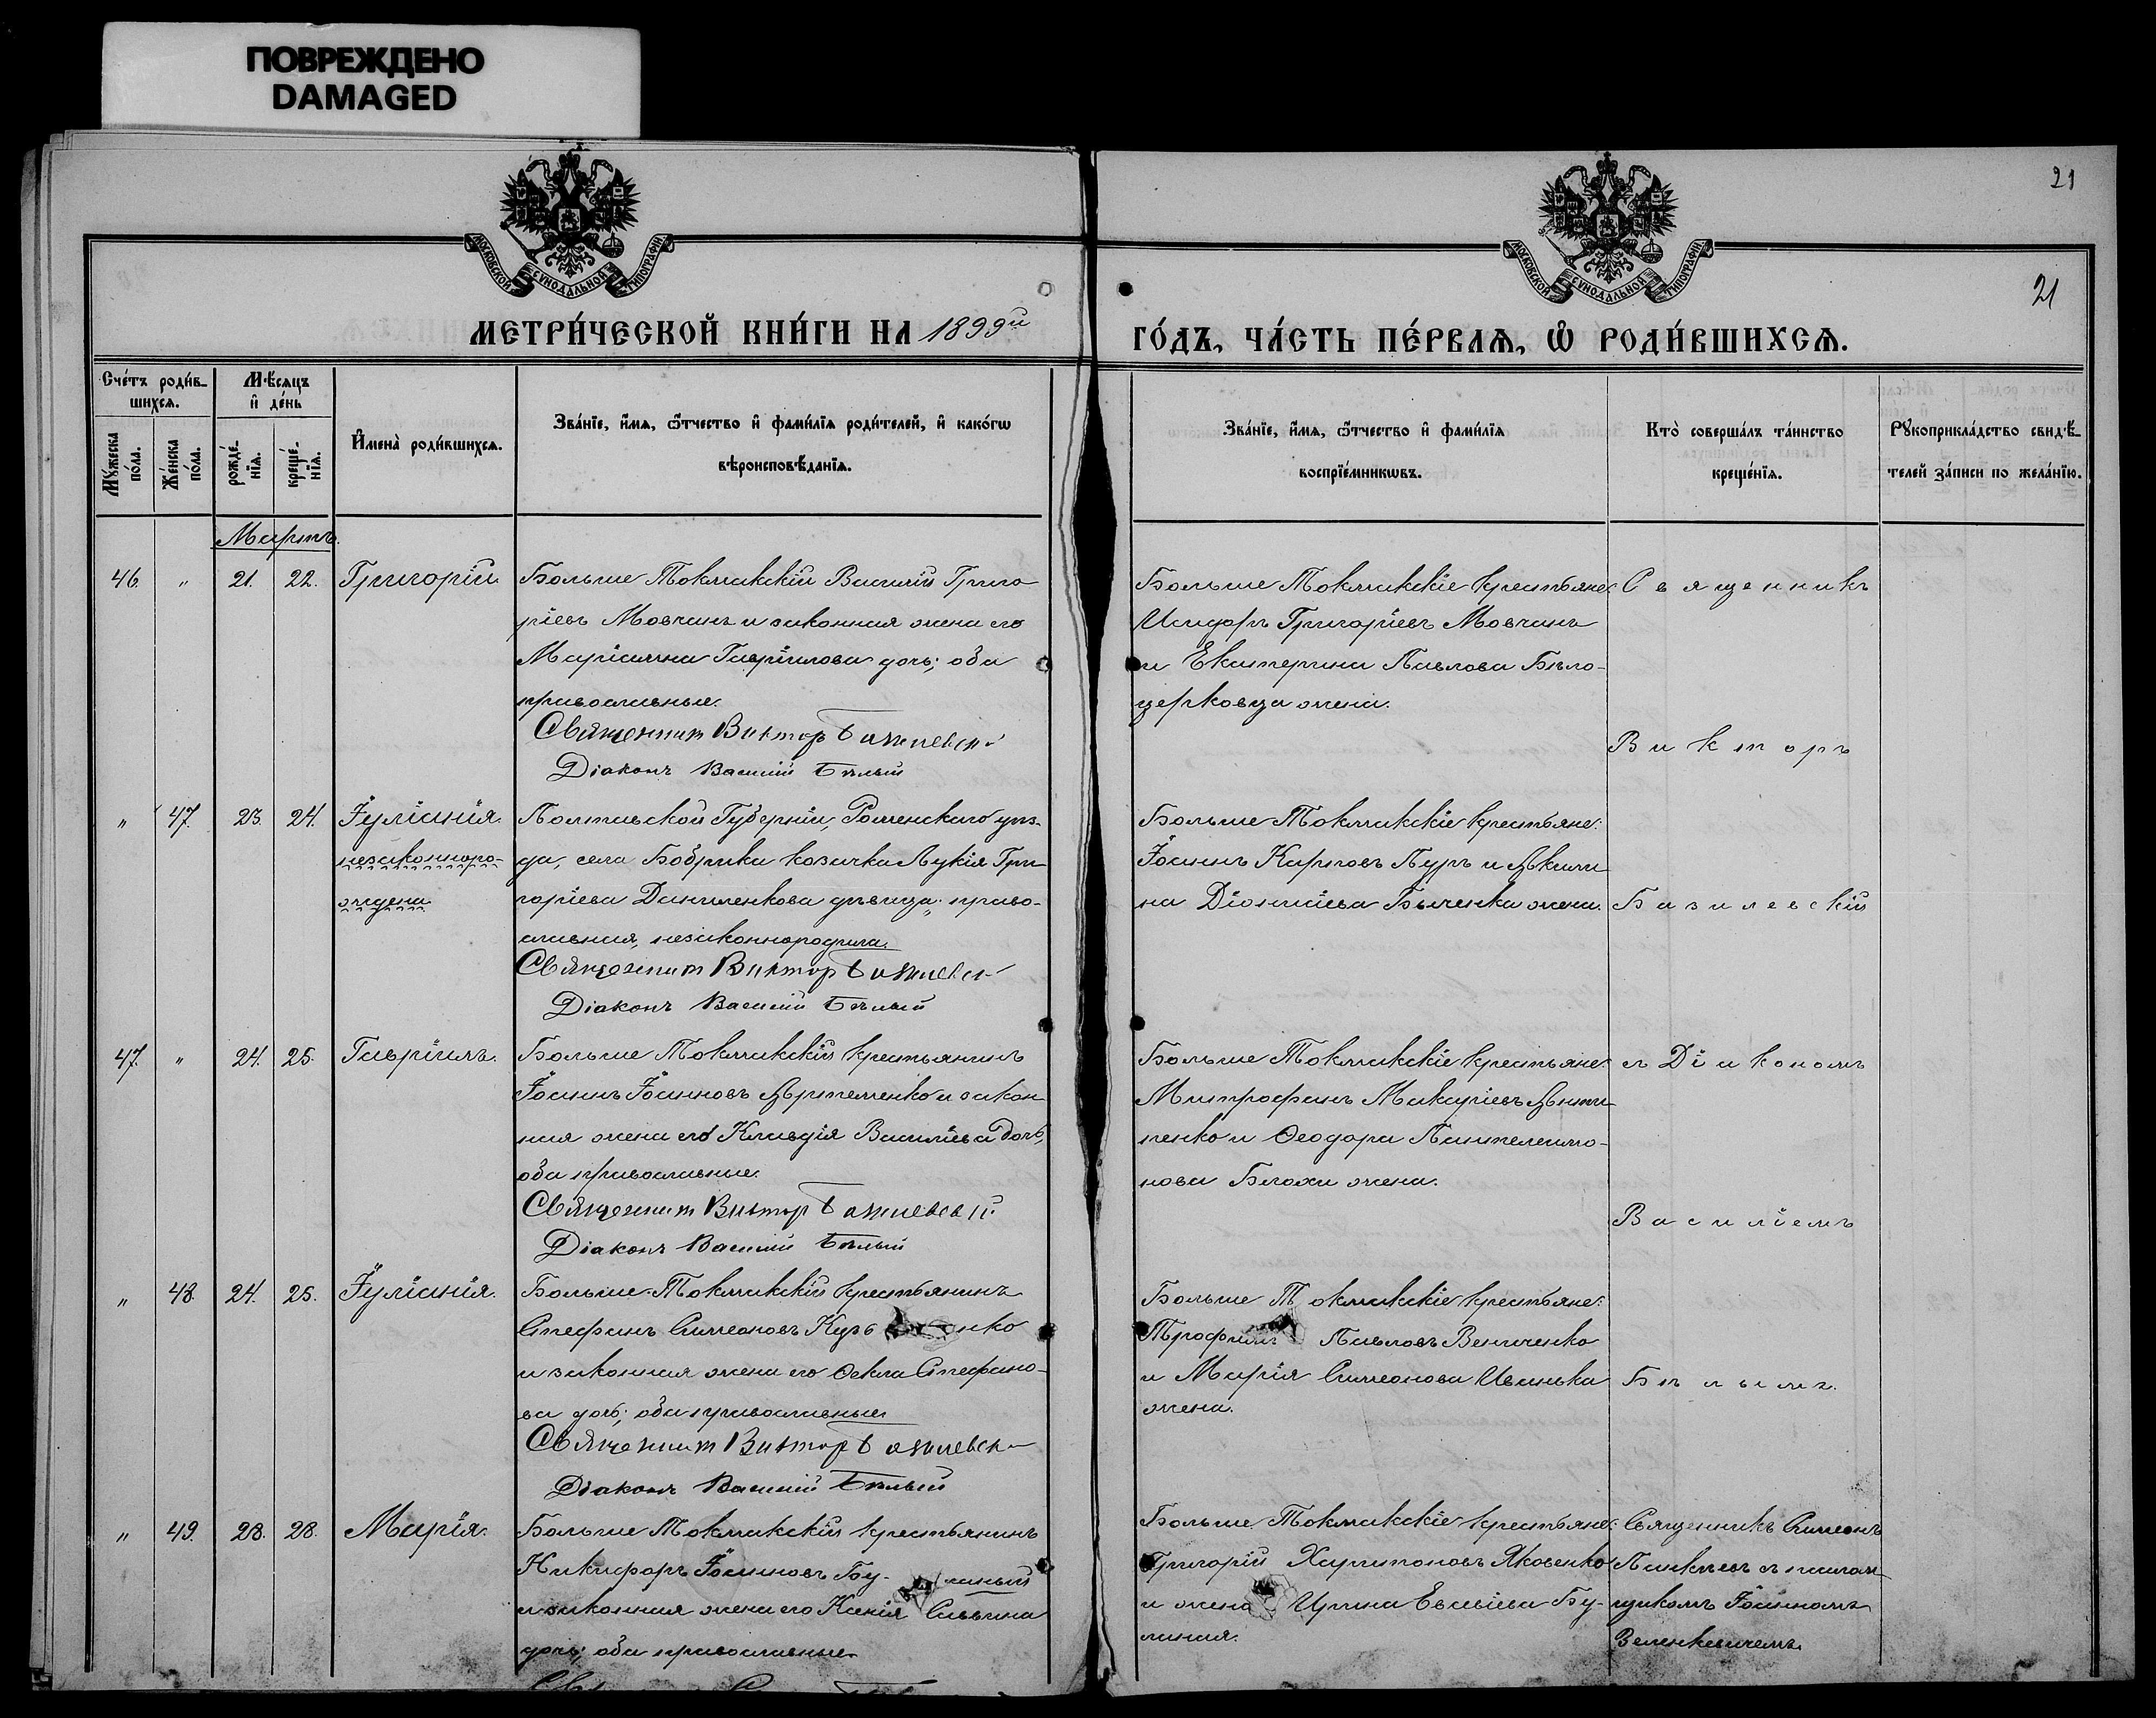 ПОВРЕЖДЕНО
DAMAGED
21
21
МОСКОВСКОЙ СѴНОДАЛЬНОЙ ТИПОГРАФІИ
МОСКОВСКОЙ СѴНОДАЛЬНОЙ ТИПОГРАФІИ
МЕТРИ́ЧЕСКОЙ КНИ́ГИ НА 1899й
ГО́ДЪ, ЧА́СТЬ ПЕ́РВАѦ, Ѡ РОДИ́ВШИХСѦ.
Сче́тъ роди́в-
шихсѧ.
Мѣ́сѧцъ
и҆ де́нь
Мꙋ́жеска
по́ла.
Же́нска
по́ла.
рожде́-
нїѧ.
креще́-
нїѧ.
И҆мена̀ роди́вшихсѧ.
Зва́нїе, и҆́мѧ, ѻ҆́тчество и҆ фами́лїѧ роди́телей, и҆ како́гѡ
вѣроисповѣ́данїѧ.
Зва́нїе, и҆́мѧ, ѻ҆́тчество и҆ фами́лїѧ
воспрїе́мникѡвъ.
Кто̀ соверша́лъ та́инство
креще́нїѧ.
Рꙋкоприкла́дство свидѣ́-
телей за́писи по жела́нїю.
Мартъ.
46. " 21. 22. Григорій.
Больше Токмакскій Василій Григо
ріевъ Мовчанъ и законная жена его
Маріамна Гавріилова дочь; оба
православные.
Священникъ Викторъ Базилевскій
Діаконъ Василій Бѣлый
Больше Токмакскіе крестьяне:
Исидоръ Григоріевъ Мовчанъ
и Екатерина Павлова Бѣло-
церковца жена.
Священникъ
Викторъ
" 47. 23. 24. Іуліанія.
незаконноро-
ждена
Полтавской Губерніи, Роменскаго уѣз-
да, села Бобрика козачка Лукія Гри-
горіева Даниленкова дѣвица; право-
славная, незаконнородила.
Священникъ Викторъ Базилевскій
Діаконъ Василій Бѣлый
Больше Токмакскіе крестьяне:
Іоаннъ Карповъ Пуръ и Акили
на Діонисіева Бытенка жена.
Базилевскій
47. " 24. 25. Гавріилъ.
Больше Токмакскій крестьянинъ
Іоаннъ Іоанновъ Артеменко и закон
ная жена его Клавдія Василіева дочь,
оба православные.
Священникъ Викторъ Базилевскій
Діаконъ Василій Бѣлый
Больше Токмакскіе крестьяне:
Митрофанъ Макаріевъ Анти
пенко и Ѳеодора Пантелеимо-
нова Блохи жена.
съ Діакономъ
Василіемъ
" 48. 24. 25. Іуліанія.
Больше-Токмакскій крестьянинъ
Стефанъ Симеоновъ нко
и законная жена его Ѳекла Стефано-
ва дочь; оба православные
Священникъ Викторъ Базилевскій
Діаконъ Василій Бѣлый
Больше Токмакскіе крестьяне:
Трофимъ Павловъ Величенко
и Марія Симеонова Иванька
жена.
Бѣлымъ.
" 49. 28. 28. Марія.
Больше Токмакскій крестьянинъ
Никифоръ Іоанновъ Бу- линый
и законная жена его Ксенія Саввина
дочь; оба православные.
Больше Токмакскіе крестьяне:
Григорій Харитоновъ Яковенко
и жена Ирина Евсевіева Бу-
линая.
Священникъ Симеонъ
Панкѣевъ съ псалом-
щикомъ Іоанномъ
Зеленкевичемъ.